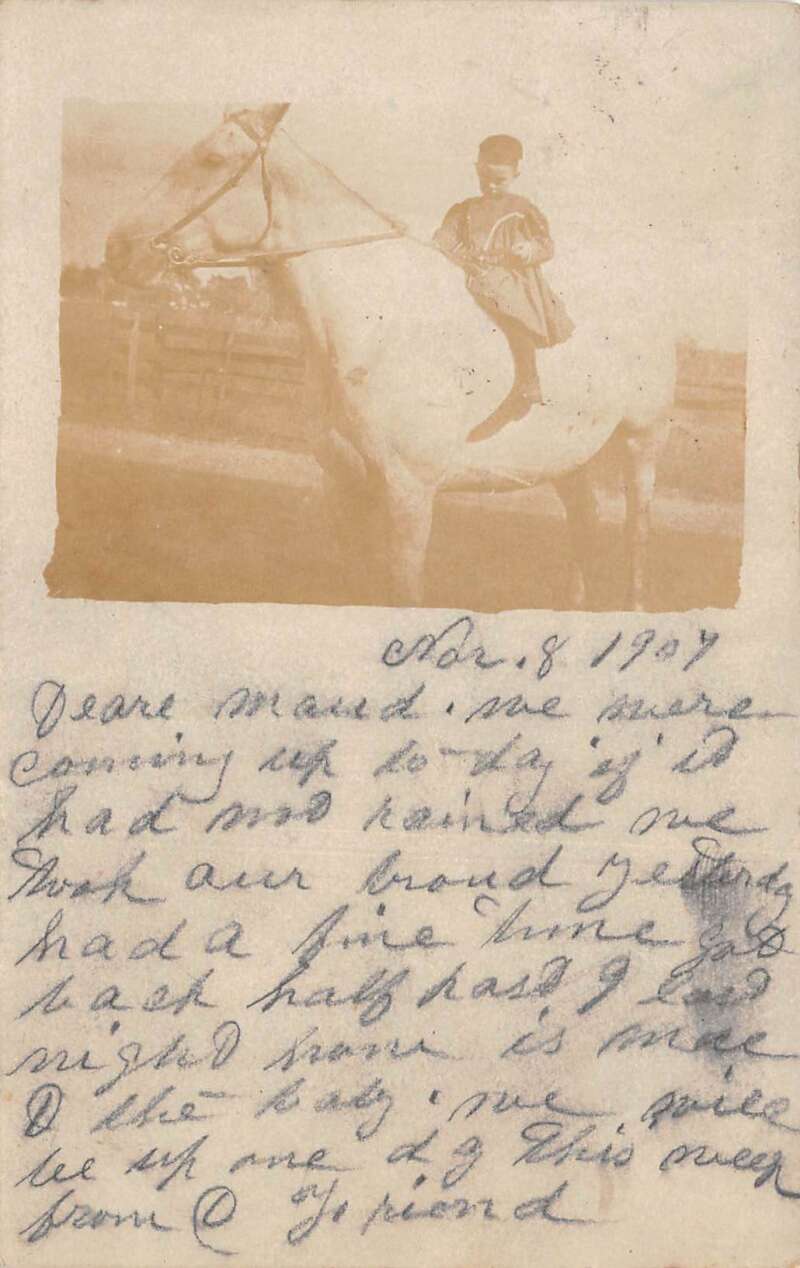 Nov. 8 1907
Deare Maud. we were
coming up to-day if it
had not rained we
took our troud yesterday
had a fine time got
back half past 9 last
night home is mae
D the baby. we will
be up one dy this week
from D